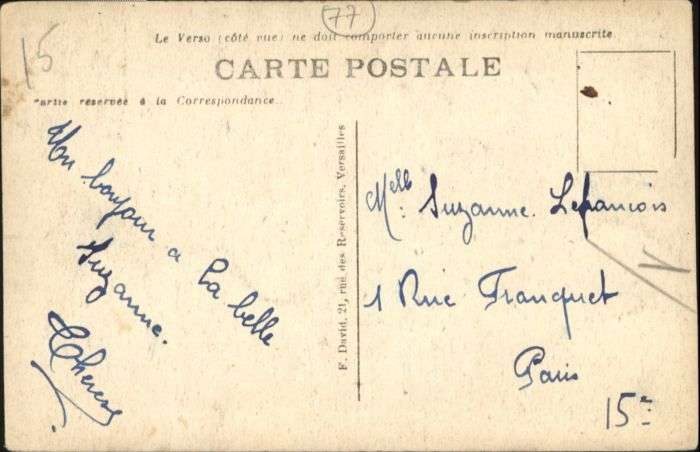 15
77
Le Verso (côté vue) ne doit comporter aucune inscription manuscrite
CARTE POSTALE
Partie réservée à la Correspondance.
Un bonjour a
la belle
Suzanne.
F. David, 21, rue des Reservoirs, Versailles
Melle Suzanne Lefrancois
1 Rue Franquet
Paris
15e